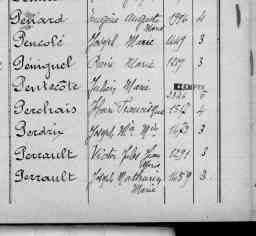 Penard Eugène Auguste Marie 1996 4
Pencolé Joseph Marie 1449 3
Péniguel Marie 1287 3
Pentecôte Julien Marie EXEMPTÉ
Perchais Jean Francisque 1512 4
Perdrix Joseph Mie Mie 1453 3
Perrault Victor Jules Jean Marie 1291 3
Perrault Joseph Mathurin Marie 1459 3